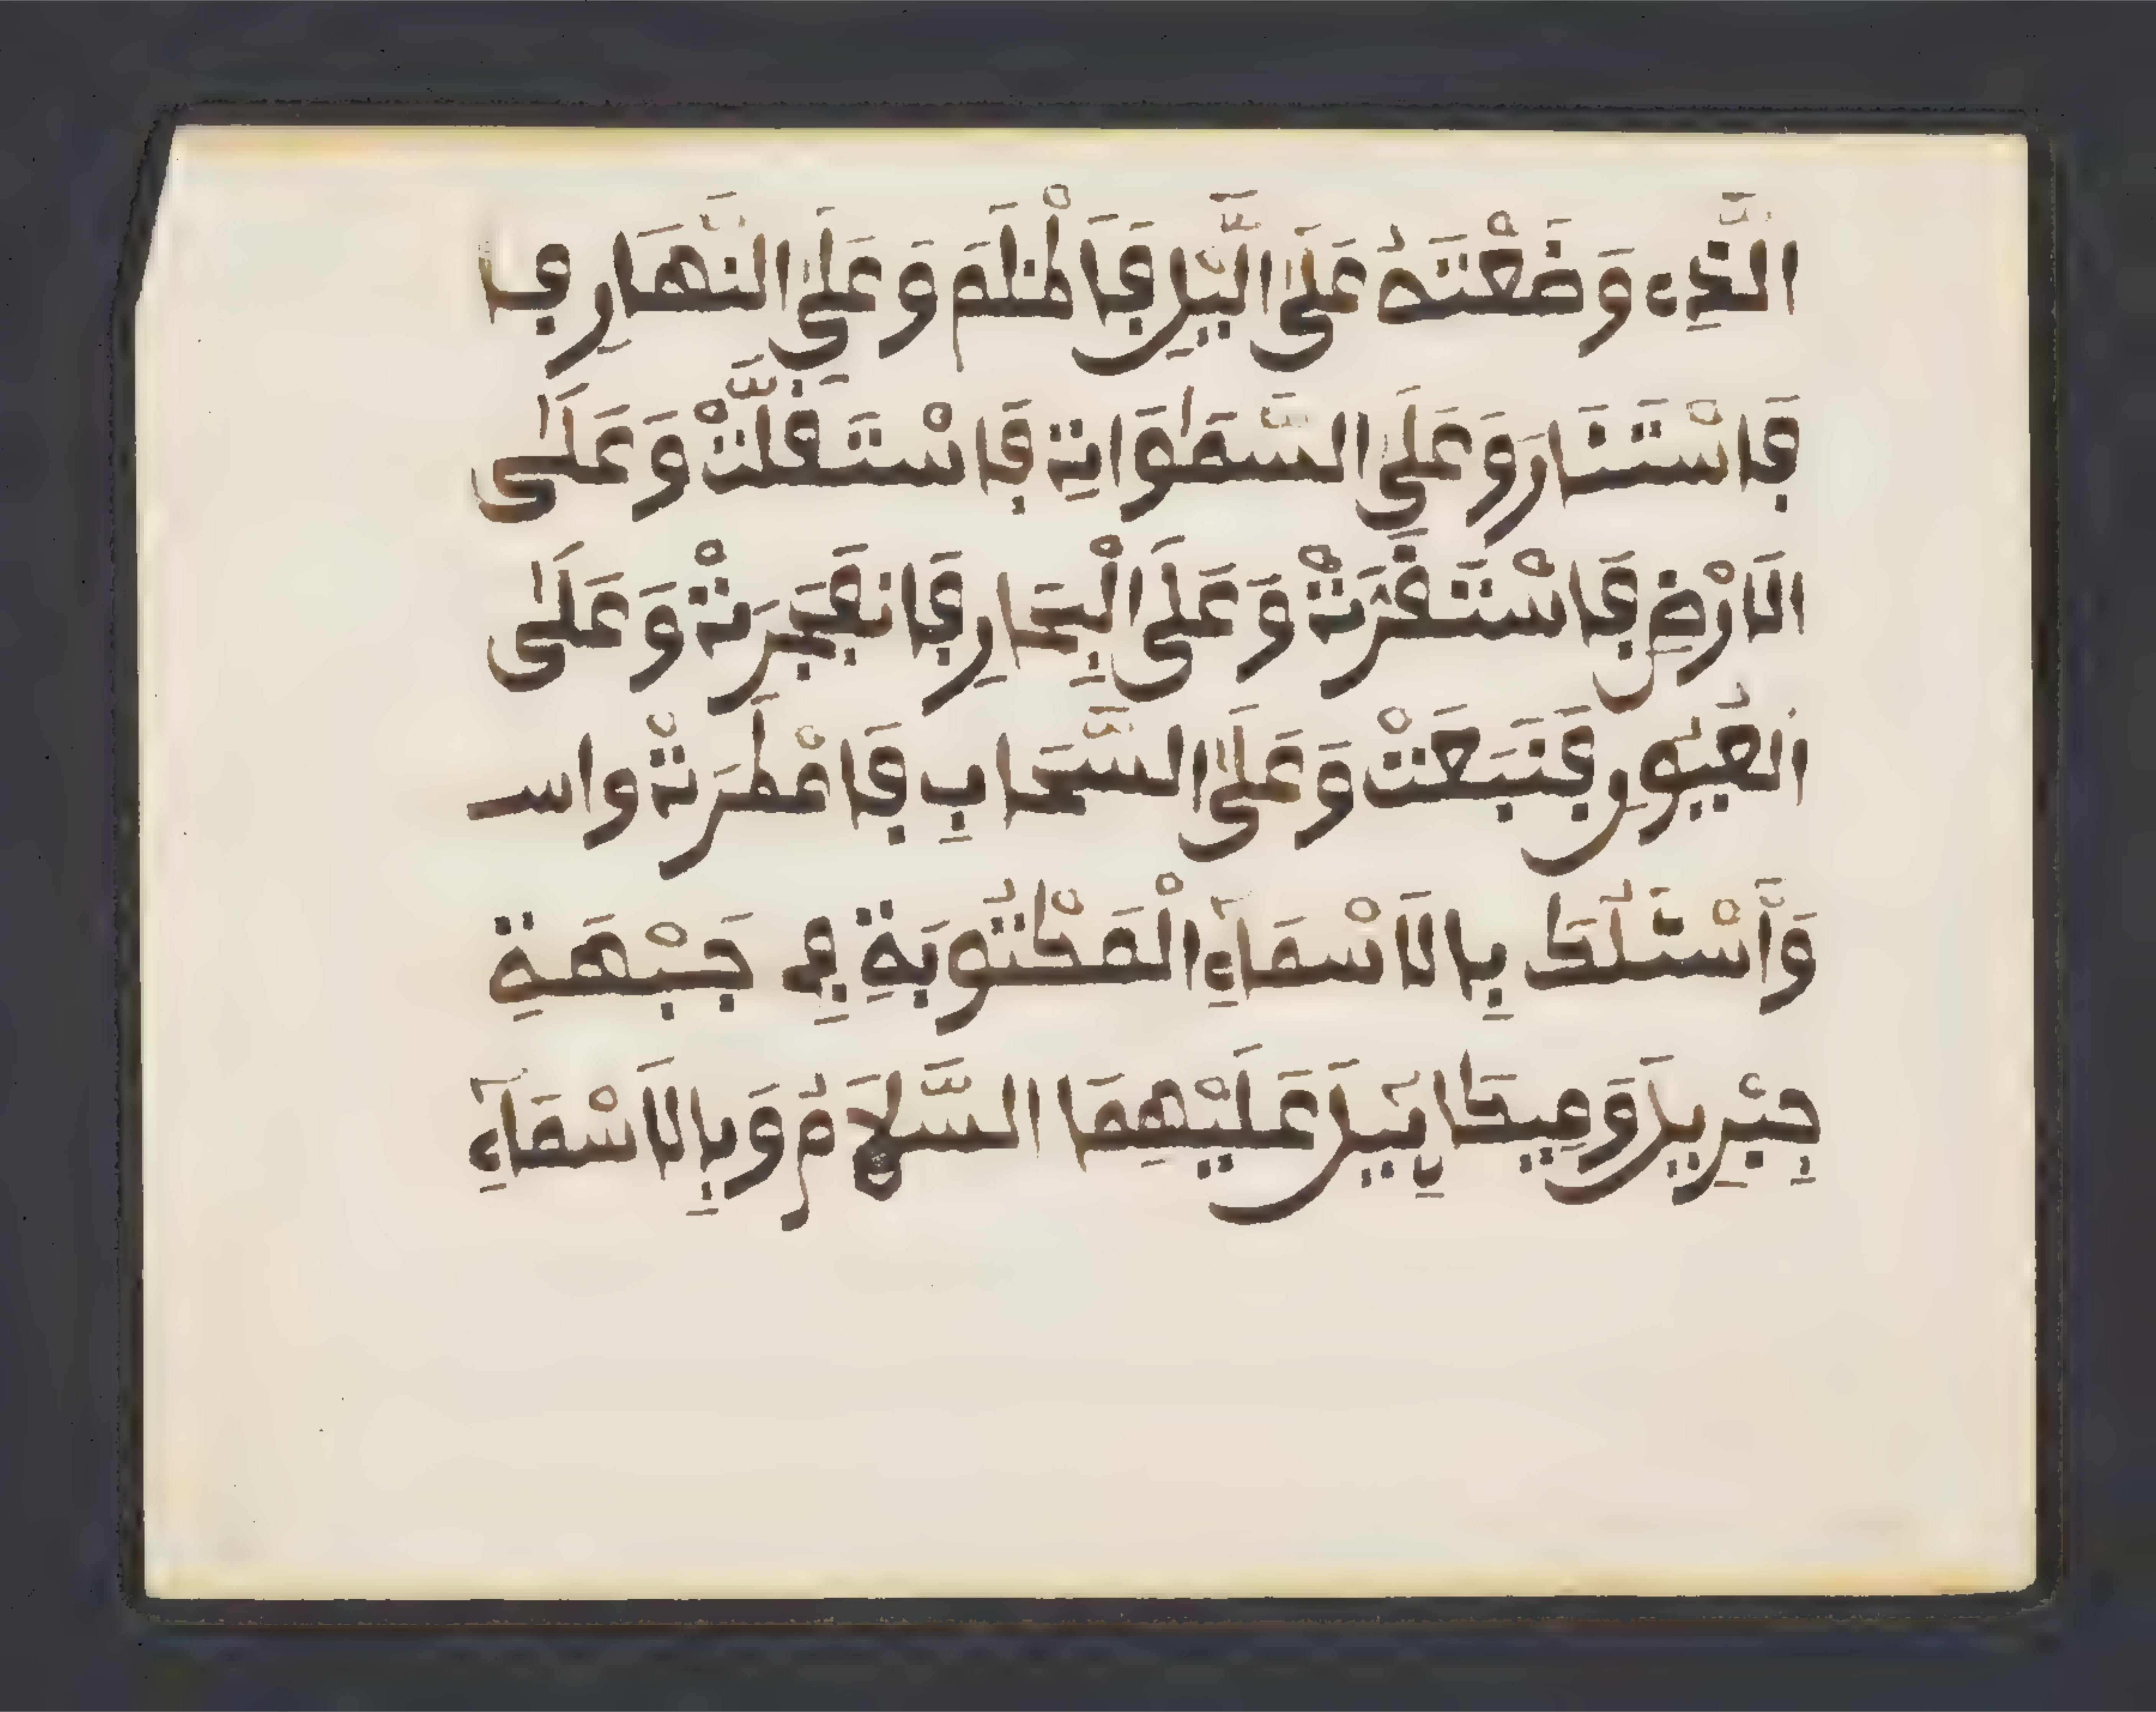 الَّذِے وَضَعْتَهُ عَلَى الَّيْلِ فَاَظْلَمَ وَعَلَى النَّهَارِ فا
فَاسْتَنَارَ وَعَلَى السَّمٰوَاتِ فَاسْتَقَلَّتْ وَعَلَى
الَارْضِ فَاسْتَقَرَّتْ وَعَلَى الْبِحَارِ فَانفَجَرَتْ وَعَلَى
العُيُونِ فَنَبَعَتْ وَعَلَى السَّحَابِ فَامْطَرَتْ واسـ
وَأَسْئَلُكَ بِالَاسْمَآءِ الْمَكْتُوبَةِ فِي جَبْهَةِ
جِبْرِيلَ وَمِيكَايِيلَ عَلَيْهِمَا السَّلَامُ وَبِالَاسْمَآءِ